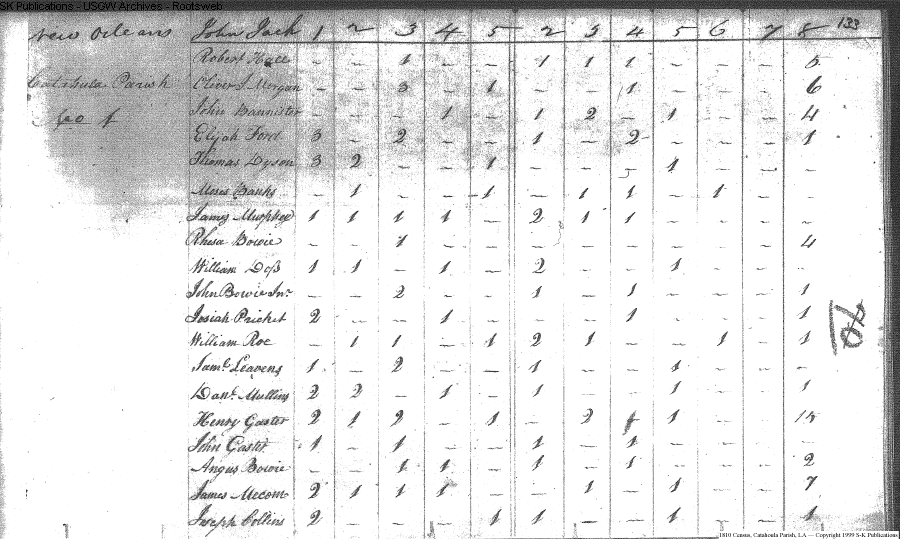 SK Publications - USGW Archives - Rootsweb
New Orleans John Jack 1 2 3 4 5 2 3 4 5 6 7 8 133
Robert Hall - - 1 - - 1 1 1 - - - 5
Catahula Parish Oliver J Morgan - - 3 - 1 - - 1 - - - 6
John Bannister - - - 1 - 1 2 - 1 - - 4
Elijah Ford 3 - 2 - - 1 - 2 - - - 1
Thomas Dyson 3 2 - - 1 - - - 1 - - -
Moses Banks - 1 - - 1 - 1 1 - 1 - -
James Murphee 1 1 1 1 - 2 1 1 - - - -
Rhesa Bowie - - 1 - - - - - - - - 4
William Deß 1 1 - 1 - 2 - - 1 - - -
John Bowie Jnr - - 2 - - 1 - 1 - - - 1
Josiah Pricket 2 - - 1 - - - 1 - - - 1
William Roe - 1 1 - 1 2 1 - - 1 - 1
Jaml Leavens 1 - 2 - - 1 - - 1 - - -
Danl Mullins 2 2 - 1 - 1 - - 1 - - 1
Henry Gaster 2 1 2 - 1 - 2 1 - -
John Gaster 1 - 1 - - 1 - 1 - - - -
Angus Bowie - - 1 1 - 1 - 1 - - - 2
James Mecom 2 1 1 1 - - 1 - 1 - - 7
Joseph Collins 2 - - - 1 1 - - 1 - - 1
1810 Census, Catahoula Parish, LA — Copyright 1999 S-K Publications